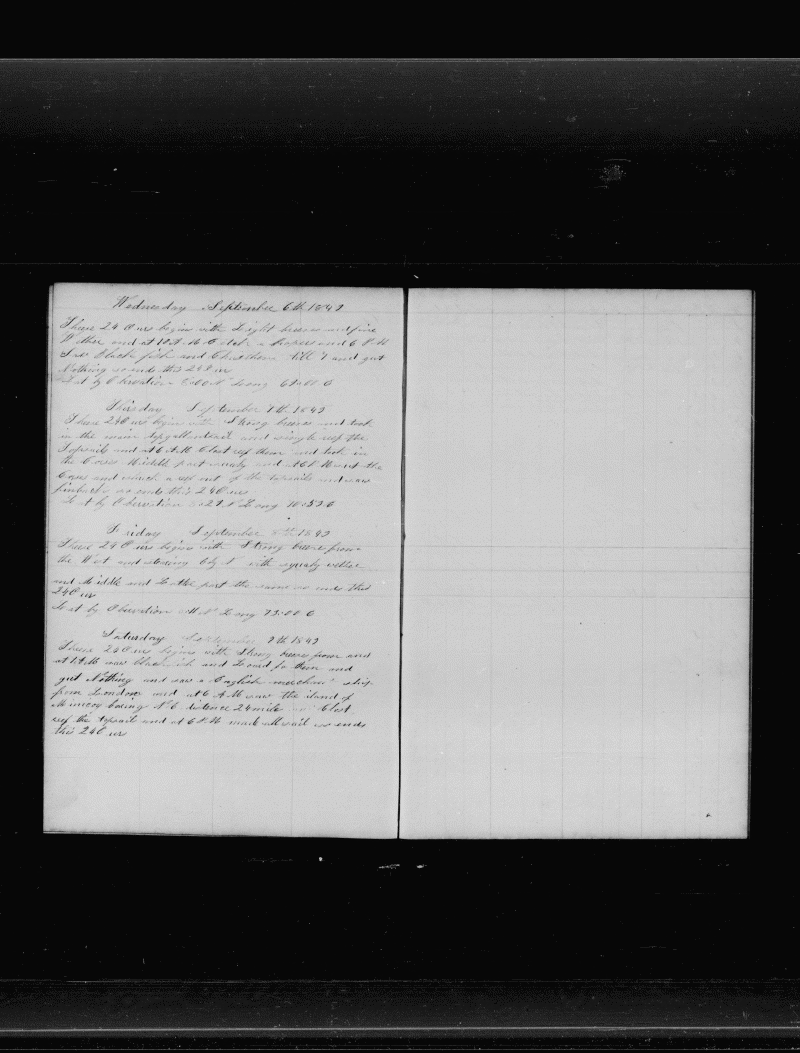 Wednesday September 6th 1843
These 24 Ours begins with Light breeses and fine
Wether and at 10 A M C a and 6 P M
Saw Black fish and till 7 and got
Nothing so ends this 24 Our
Lat by Obseration Long
Thirsday September 7th 1843
These 24 Ours begin with Strong breeses and took
in the main topgallantsail and single reef the
Topsails and at 6 A M Clost reef them and took in
the Corses Middle part squaly and at 6 P M set the
Corses and a reef out of the topsails and saw
so ends this 24 Ours
Lat by Obseration 27 Long
Friday September 1843
These 24 Ours begins with Strong breese from
the West and stearing with squaly wether
and Middle and Lathe part the same so ends this
24 Ours
Lat by Obseration Long 73.00 E
Saturday September 9th 1843
These 24 Ours begins with Strong breese from and
at 1 A M saw blackfish and Loard for them and
got Nothing and saw a English merchant ship
from London and at 6 A M saw the iland of
baring distence 24 mile Clost
reef the topsails and at 6 P M made all sail so ends
this 24 Ours